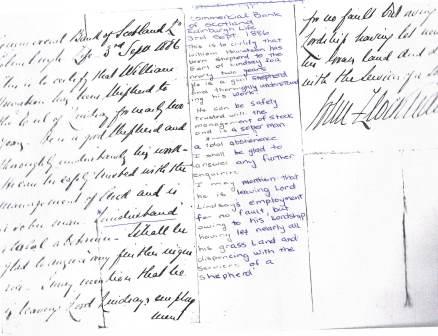 Commercial Bank of Scotland Ld
Edinburgh 3rd Sept 1886
This is to certify that William
has been Shepherd to
the Earl of Lindsay for nearly two
years. He is a good Shepherd and
thoroughly understands his work.
He can be safely trusted with the
management of Stock and is
a sober man "Understand"
total abstainer. I shall be
glad to answer any further
I may mention that he
is leaving Lord Lindsay's employ
ment
Commercial Bank
of Scotland
Edinburgh
3rd Sept 1886
This is to certify that
William has
been shepherd to the
Earl of Lindsay
nearly two years
He is a good shepherd
and thoroughly understand
ing his work
He can be safely
trusted with the
management of stock
and is a sober man
a total abstainer
I shall be glad to
answer any further
enquiries
I may mention that
he is leaving Lord
Lindsay's employment
for no fault, but
owing to his Lordship
having let nearly all
his grass Land and
dispencing with the
services of a
shepherd
for no fault but owing
Lordship having let
grass land and
with the services of a
John